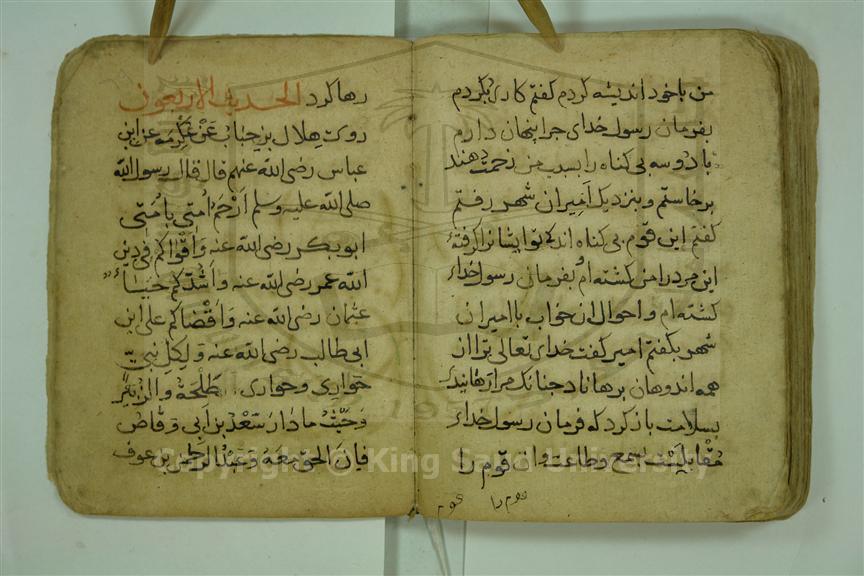 من باخود اندیشه کردم کفتم کاری بکردم
بفرمان رسول خدای جرا پنهان دارم
تا دوسه بی کناه را بسبب من زحمت دهند
برخاستم و بنزدیک امیران شهر رفتم
کفتم این قوم بی کناه اند که تو ایشانرا کرفتهٔ
این مرد را من کشته ام بفرمان رسول خدای
کشته ام و احوال ان خواب با امیران
شهر بکفتم امیر کفت خدای تعالی ترا از
همه اندوهان برهاناد جنانک مرا رهانیدی
بسلامت باز کرد که فرمان رسول خدای
بسمع وطاعت و ان قوم را
قوم را
رها کرد الحدیث الاربعون
روی هلال بن حباب عن عکرمه عن ابن
عباس رضی الله عنهم قال قال رسول الله
صلی الله علیه وسلم اَرْحَمُ امتی بامتی
ابوبکر رضی الله عنه وَاَقْوَاکم فی دین
الله عمر رضی الله عنه واَشَدُّکم حَیَاءً
عثمان رضی الله عنه وَاَقْضَاکم علی ابن
ابی طالب رضی الله عنه وَلِکلِ نَبِیّ
حَوَارِی وحواری طَلْحَة والزُبَیْر
وَحَیْثُ مادَارَ سَعْدُ بن اَبی وَقاص
فَاِنَ الحَق مَعَهُ وَعَبْدُ الرَحمن بن عوف
Copyright © King Saud University